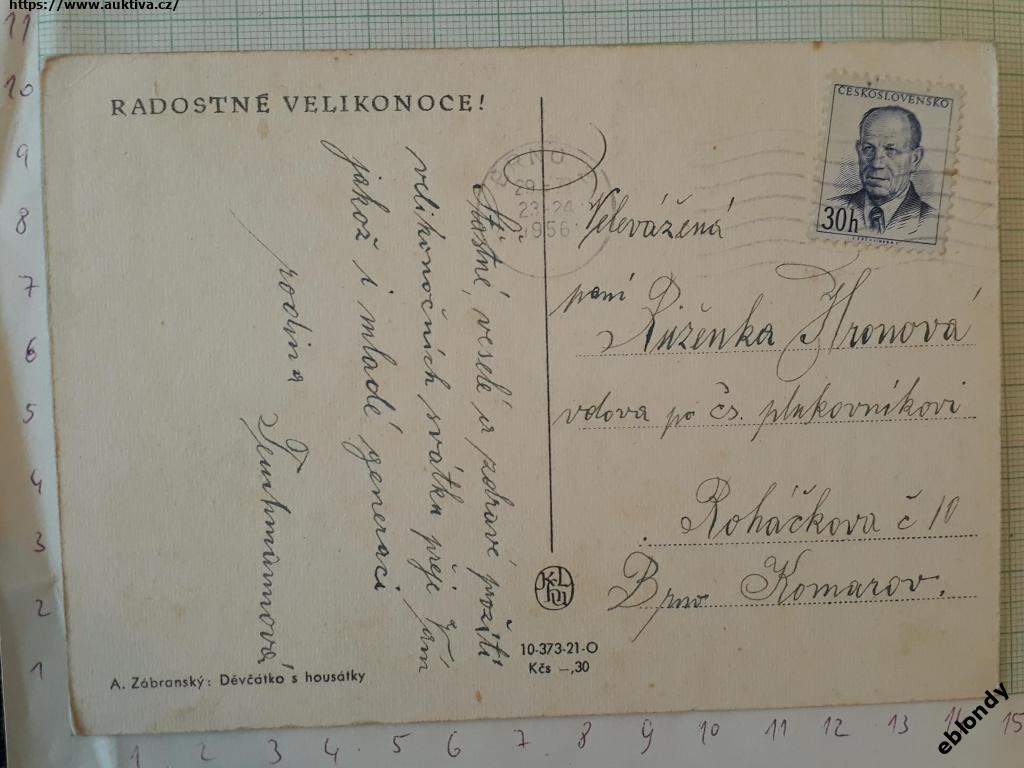 https://www.auktiva.cz/
RADOSTNÉ VELIKONOCE!
Šťastné, veselé a zdravé požití
velikonočních svátků přeje Vám
jakož i mladé generaci
rodina
Teuchmannová
A. Zábranský: Děvčátko s housátky
BRNO
29
23-24
1956
ČESKOSLOVENSKO
30h
Velevážená
paní
Růženka Hronová
vdova po čs. plukovníkovi
Roháčkova č 10
Brno Komarov.
10-373-21-O
Kčs –,30
11
10
9
8
7
6
5
4
3
2
1
1 2 3 4 5 6 7 8 9 10 11 12 13 14 15
eblondy